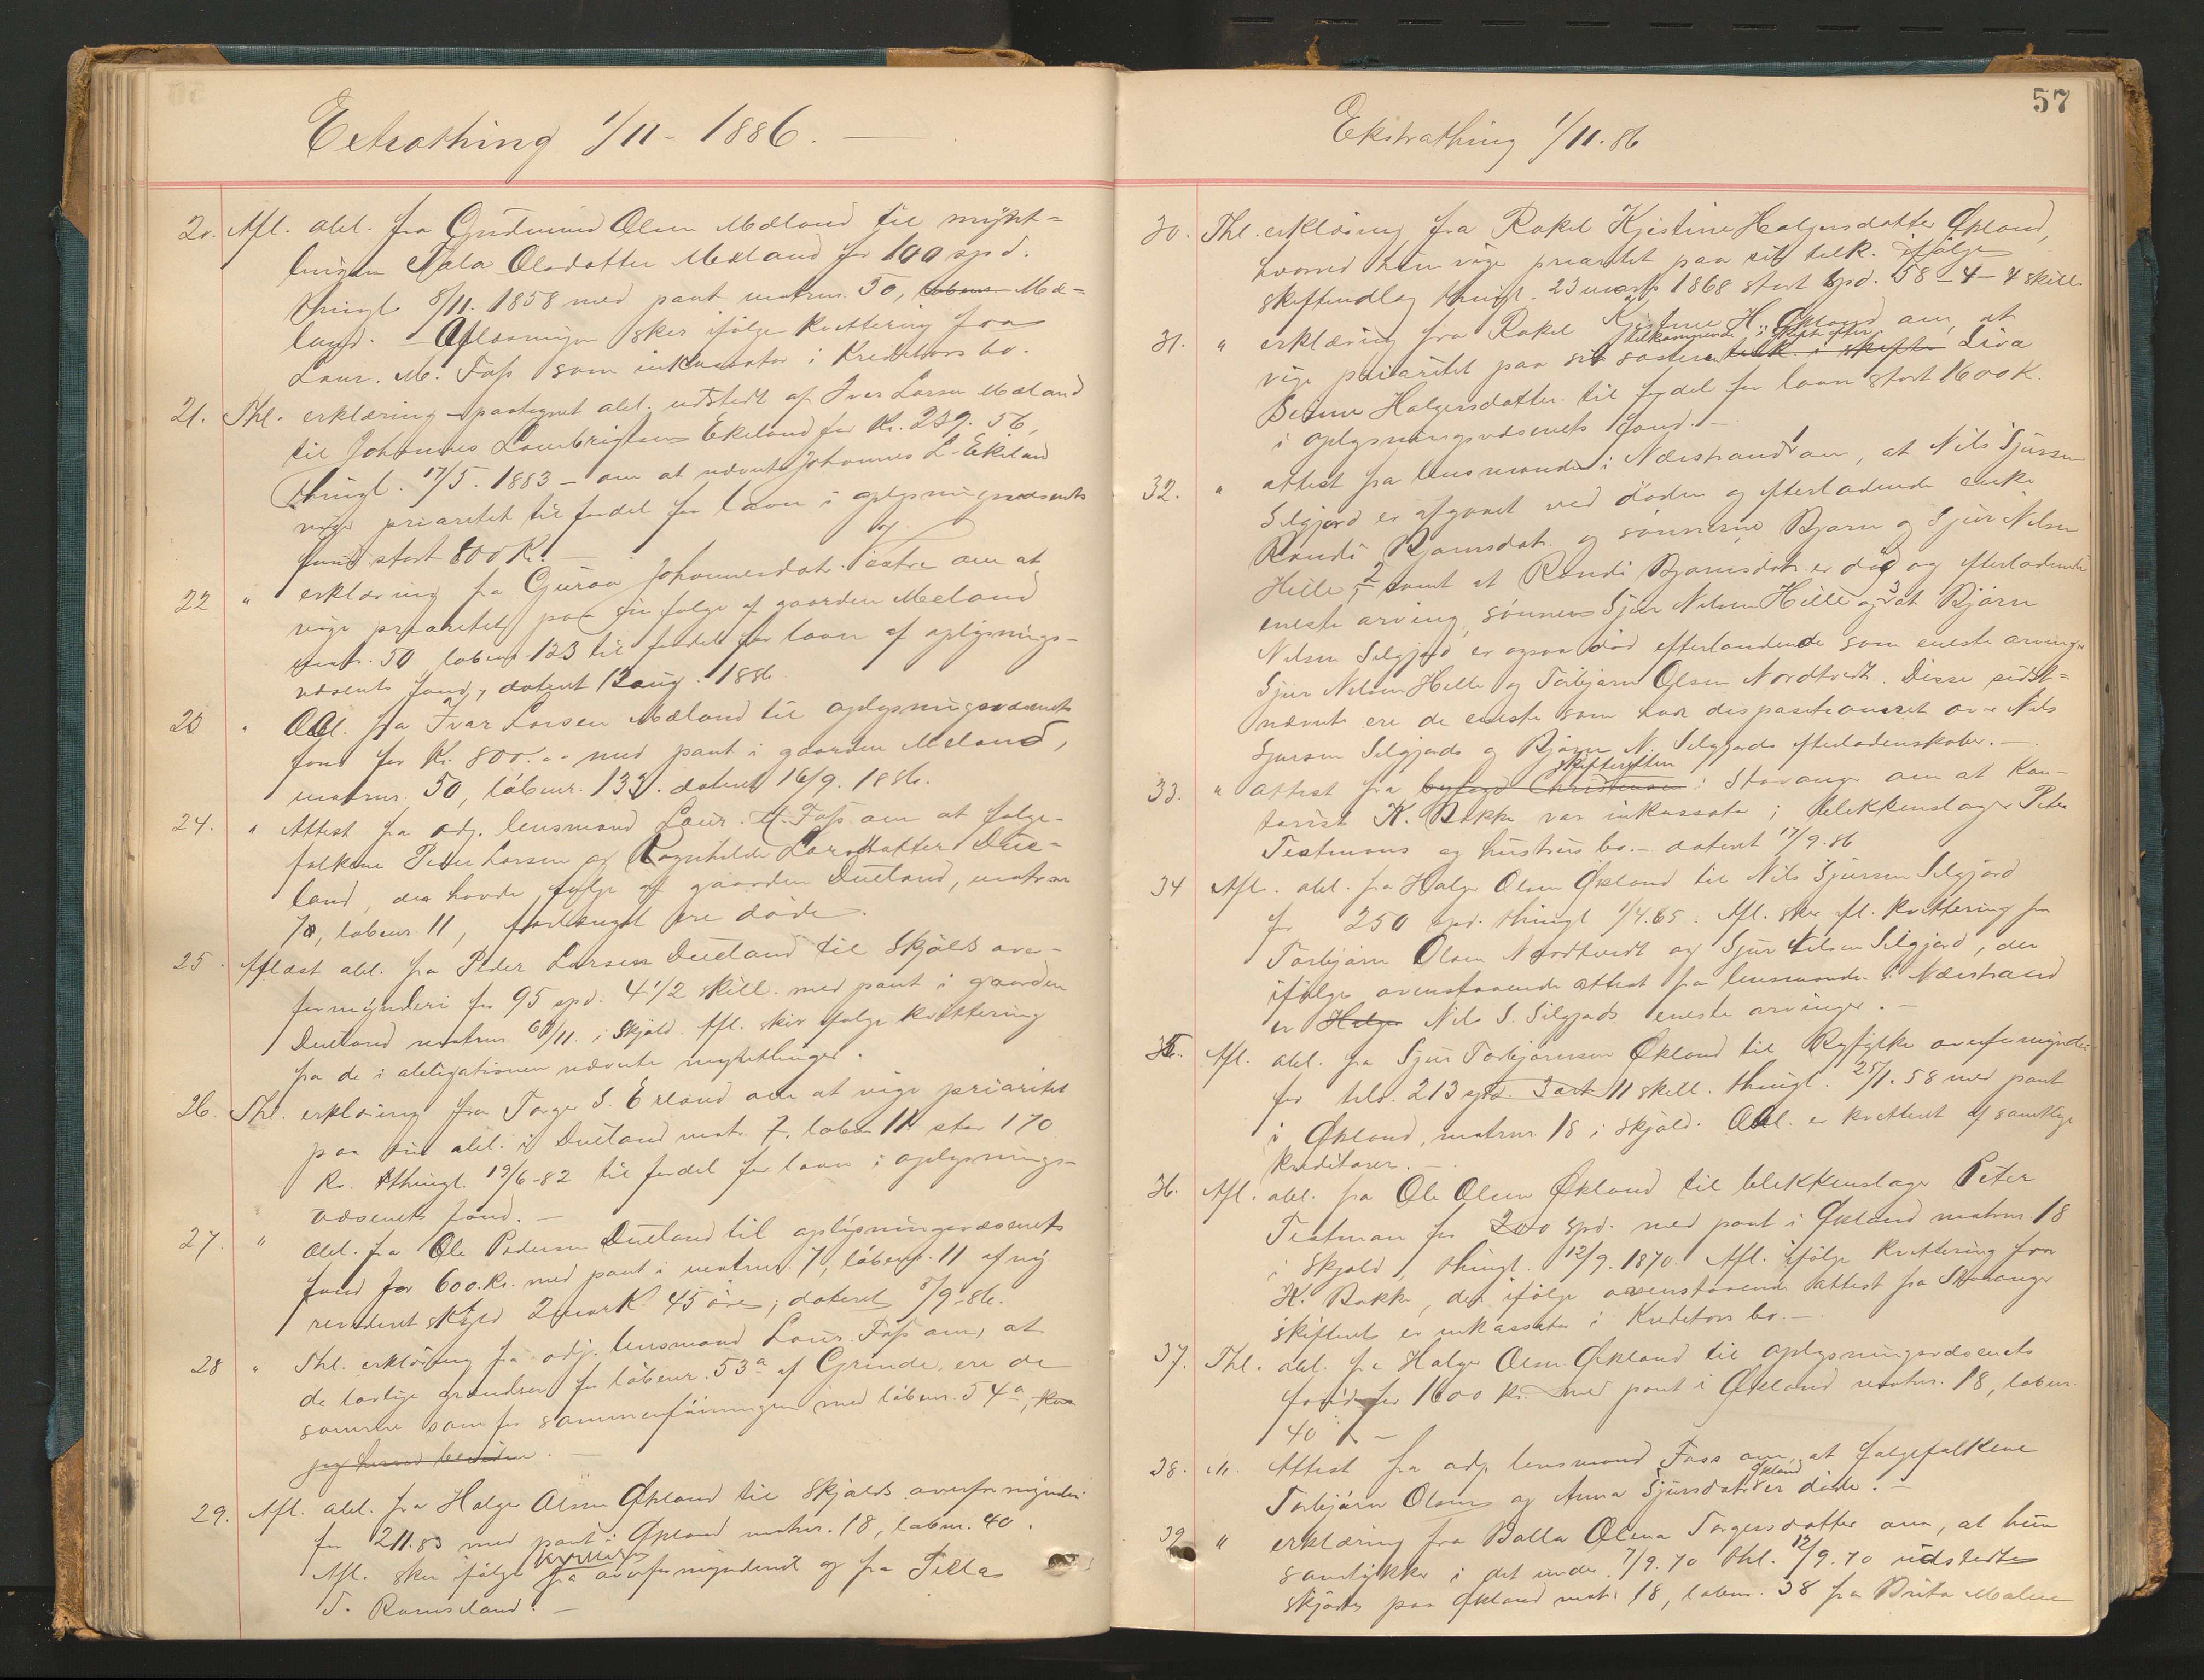 Extrathing 1/11 - 1886. —
20. Afl. obl. fra Gudmund Olsen Mæland til mynt-
lingen Tala Olsdatter Mæland for 100 spd.
thingl. 8/11. 1858 med pant matrnr. 50, løbenr. Mæ-
land. — Aflæsningen sker ifølge kvittering fra
Laur. M. Foss som inkassator i Kreditors bo.
21. Thl. erklæring - paategnet obl. udstedt af Iver Larsen Mæland
til Johannes Lambrigtsen Ekeland for Kr. 239. 56,
thingl. 17/5. 1883 - om at nævnte Johannes L. Ekeland
vige prioritet til fordel for laan i oplysningsvæsenets
fond stort 800 K. —
22 " erklæring fra Guroa Johannesdatr. om at
vige prioritet paa sin følge af gaarden Meland
matr. 50 løbenr. 123 til fordel for laan af oplysnings-
væsenets fond, dateret 12 aug. 1886.
23 " Obl. fra Ivar Larsen Mæland til oplysningsvæsenets
fond for Kr. 800.00 med pant i gaarden Meland,
matrnr. 50, løbenr. 133. dateret 16/9. 1886.
24. " Attest fra adj. lensmand Laur. M. Foss om at følge-
folkene Peder Larsen og Ragnhilde Larsdatter Due-
land, der havde følge af gaarden Dueland, matrnr
7a, løbenr. 11, forlængst ere døde.
25. Aflæst obl. fra Peder Larsen Dueland til Skjolds ove-
formynderi for 95 spd. 4 1/2 skill. med pant i gaarden
Dueland matrnr. 6/11. i Skjold. Afl. sker ifølge kvittering
fra de i obligationen nævnte myndtlinger.
26. Thl. erklæring fra Torger S. Erland om at vige prioritet
paa sin obl. i Dueland matr. 7. løbenr 11 stor 170
Kr. thingl. 19/6-82 til fordel for laan i oplysnings-
væsenets fond. —
27. " Obl. fra Ole Pedersen Dueland til oplysningsvæsenets
fond for 600.Kr. med pant i matrnr. 7, løbenr. 11 af ny
revideret skyld 2 mark 45 øre, dateret 8/9-86.
28 " Thl. erklæring fra adj. lensmand Laur. Foss om, at
de lovlige grændser for løbenr. 53a af Grinde, ere de
samme som før sammenføiningen med løbenr. 54a,
29. Afl. obl. fra Holge Olsen Økland til Skjolds overformynderi
for 211.83 med pant i Økland matrnr. 18, løbenr. 40.
Afl. sker ifølge kvittering fra overformynderiet og fra Tillas
T. Ramsland. —
57
Ekstrathing 1/11. 86
30. Thl. erklæring fra Rakel Kjistine Holgersdatter Økland,
hvorved hun vige prioritet paa sit tilk. ifølge
skifteudlæg thingl. 23 marts 1868 stort spd. 58 - 4 - 4 skill.
31. " erklæring fra Rakel Kjistine H. Økland om, at
vige prioritet paa sit søsteren tilkommende i skifte efter tilk. i skifte Liva
Serine Holgersdatter til fordel for laan stort 1600 K.
i oplysningsvæsenets fond. —
32. " attest fra lensmanden i Nærstrand om, 1 at Nils Sjursen
Selgjord er afgaaet ved døden og efterladende enke
Randi Bjørnsdatr. og sønnerne Bjørn og Sjur Nilsen
Helle, 2 samt at Randi Bjørnsdatr. er død og efterladende
eneste arving, sønnen Sjur Nilsen Helle og 3 at Bjørn
Nilsen Selgjord er ogsaa død efterladende som eneste arvinger
Sjur Nilsen Helle og Torbjørn Olsen Nordtvedt. Disse sidst-
nævnte ere de eneste som har dispositionsret over Nils
Sjursen Selgjords og Bjørn N. Selgjords efterladenskaber. —
33. " attest fra byfoged Christensen skifteretten i Stavanger om at Kon-
torist K. Bakke var inkassator i blekkenslager Peter
Testmans og hustrus bo. - dateret 17/9. 86
34 Afl. obl. fra Holge Olsen Økland til Nils Sjursen Selgjord
for 250 spd. thingl 1/4. 65. Afl. sker ifl. kvittering fra
Torbjørn Olsen Nordtvedt og Sjur Nilsen Selgjord, der
ifølge ovenstaaende attest fra lensmanden i Nærstrand
er Holge Nils S. Selgjords eneste arvinger. —
35. Afl. obl. fra Sjur Torbjørnsen Økland til Ryfylke overformynderi
for 213 spd. 3 ort 11 skill. thingl. 25/1. 58 med pant
i Økland, matrnr. 18 i Skjold. Obl. er kvitteret af samtlige
kreditorer. —
36. Afl. obl. fra Ole Olsen Økland til blekkenslager Peter
Testman for 200 spd. med pant i Økland matrnr. 18
i Skjold, thingl. 12/9. 1870. Afl. ifølge kvittering fra
K. Bakke, der ifølge ovenstaaende attest fra Stavanger
skifteret er inkassator i Kreditors bo. —
37. Thl. obl. fra Holge Olsen Økland til oplysningsvæsenets
fond for 1600 Kr. med pant i Økland matrnr. 18, løbenr.
40 —
38. " Attest fra adj. lensmand Foss om, at følgefolkene
Torbjørn Olsen og Anna Sjursdatr. Økland er døde. —
39 " erklæring fra Balla Olena Torgersdatter om, at hun
samtykker i det under 7/9. 70 thl. 12/9. 70 udstedte
skjøde paa Økland matr. 18, løbenr. 38 fra Brita Malene